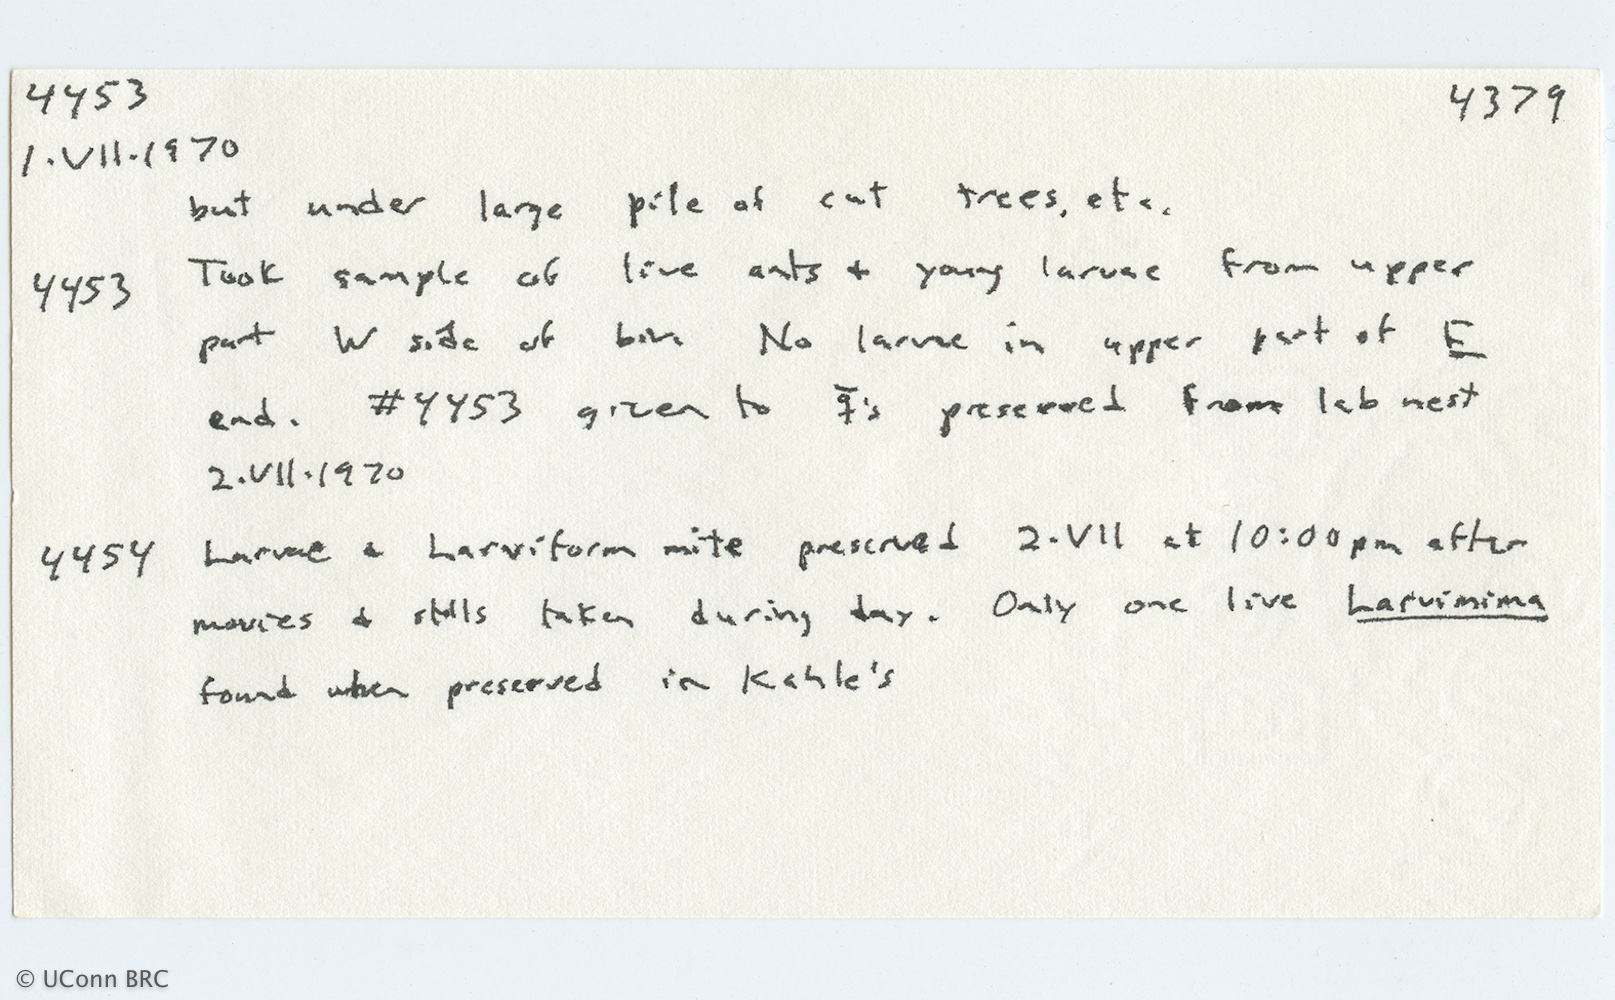 4453 4379
1.VII.1970
but under large pile of cut trees, etc.
4453 Took sample of live ants + young larvae from upper
part W side of bin No larvae in upper part of E
end. #4453 given to ☿'s preserved from lab nest
2.VII.1970
4454 Larvae & Larviform mite preserved 2.VII at 10:00pm after
movies & stills taken during day. Only one live Larvimima
found when preserved in Kahle's
© UConn BRC